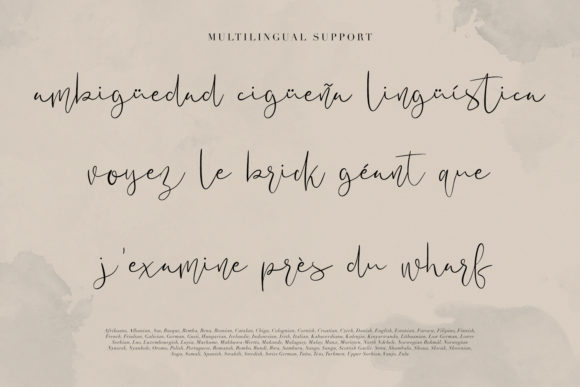 MULTILINGUAL SUPPORT
ambigüedad cigüeña lingüística
voyez le brick géant que
j'examine près du wharf
Afrikaans, Albanian, Asu, Basque, Bemba, Bena, Bosnian, Catalan, Chiga, Colognian, Cornish, Croatian, Czech, Danish, English, Estonian, Faroese, Filipino, Finnish,
French, Friulian, Galician, German, Gusii, Hungarian, Icelandic, Indonesian, Irish, Italian, Kabuverdianu, Kalenjin, Kinyarwanda, Lithuanian, Low German, Lower
Sorbian, Luo, Luxembourgish, Luyia, Machame, Makhuwa-Meetto, Makonde, Malagasy, Malay, Manx, Morisyen, North Ndebele, Norwegian Bokmål, Norwegian
Nynorsk, Nyankole, Oromo, Polish, Portuguese, Romansh, Rombo, Rundi, Rwa, Samburu, Sango, Sangu, Scottish Gaelic, Sena, Shambala, Shona, Slovak, Slovenian,
Soga, Somali, Spanish, Swahili, Swedish, Swiss German, Taita, Teso, Turkmen, Upper Sorbian, Vunjo, Zulu